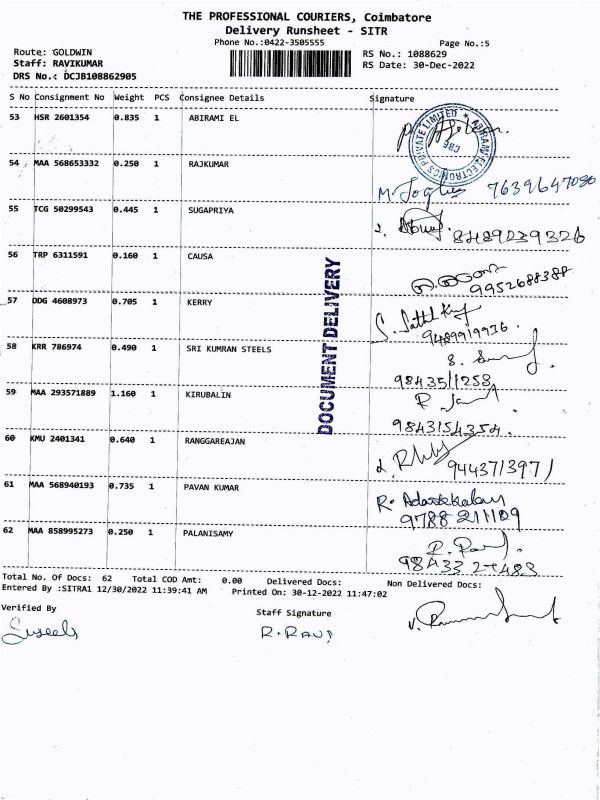 THE PROFESSIONAL COURIERS, Coimbatore
Delivery Runsheet - SITR
Phone No.:0422-3505555
Page No.:5
Route: GOLDWIN
RS No.: 1088629
Staff: RAVIKUMAR
RS Date: 30-Dec-2022
DRS No.: DCJB108862905
S No Consignment No Weight PCS Consignee Details Signature
53 HSR 2601354 0.835 1 ABIRAMI EL
54 MAA 568653332 0.250 1 RAJKUMAR
7639647080
55 TCG 50299543 0.445 1 SUGAPRIYA
8489239326
56 TRP 6311591 0.160 1 CAUSA
9952688388
57 DDG 4608973 0.705 1 KERRY
9489919936.
58 KRR 786974 0.490 1 SRI KUMRAN STEELS
9843511253
59 MAA 293571889 1.160 1 KIRUBALIN
9843154354.
60 KMU 2401341 0.640 1 RANGGAREAJAN
9443713971
61 MAA 568940193 0.735 1 PAVAN KUMAR
9788211109
62 MAA 858995273 0.250 1 PALANISAMY
DOCUMENT DELIVERY
Total No. Of Docs: 62 Total COD Amt: 0.00 Delivered Docs: Non Delivered Docs:
Entered By :SITRA1 12/30/2022 11:39:41 AM Printed On: 30-12-2022 11:47:02
Verified By
Staff Signature
Suseela
R. RAVI